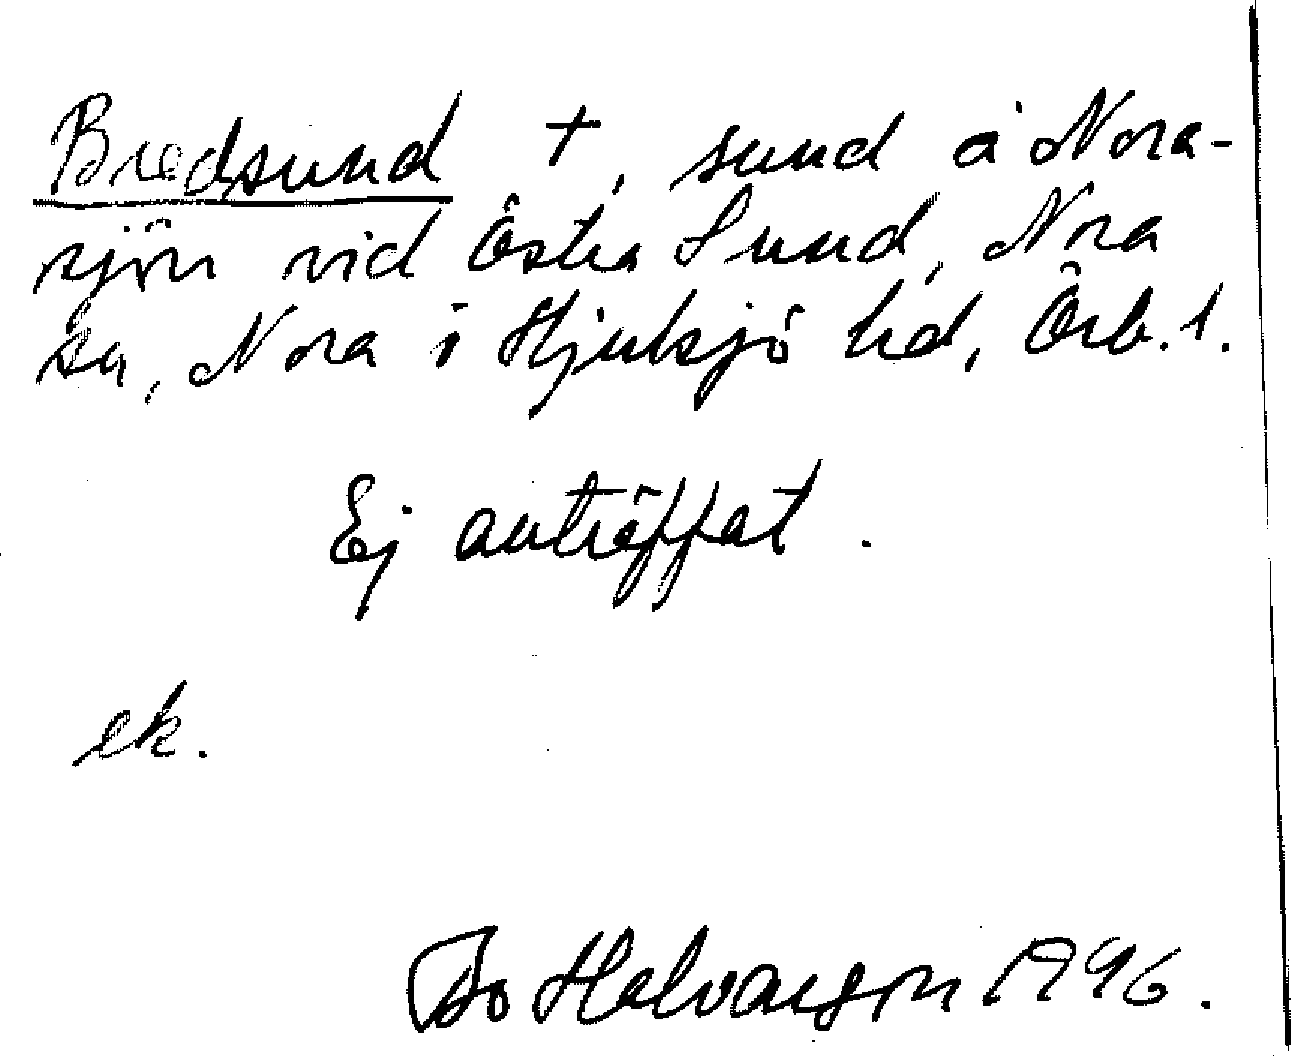 Bredsund †, sund å Nora-
sjön vid Östra Sund, Nora
sn, Nora i Hjulsjö hd, Örb. l.
Ej anträffat.
ek.
Bo Halvarson 1996.